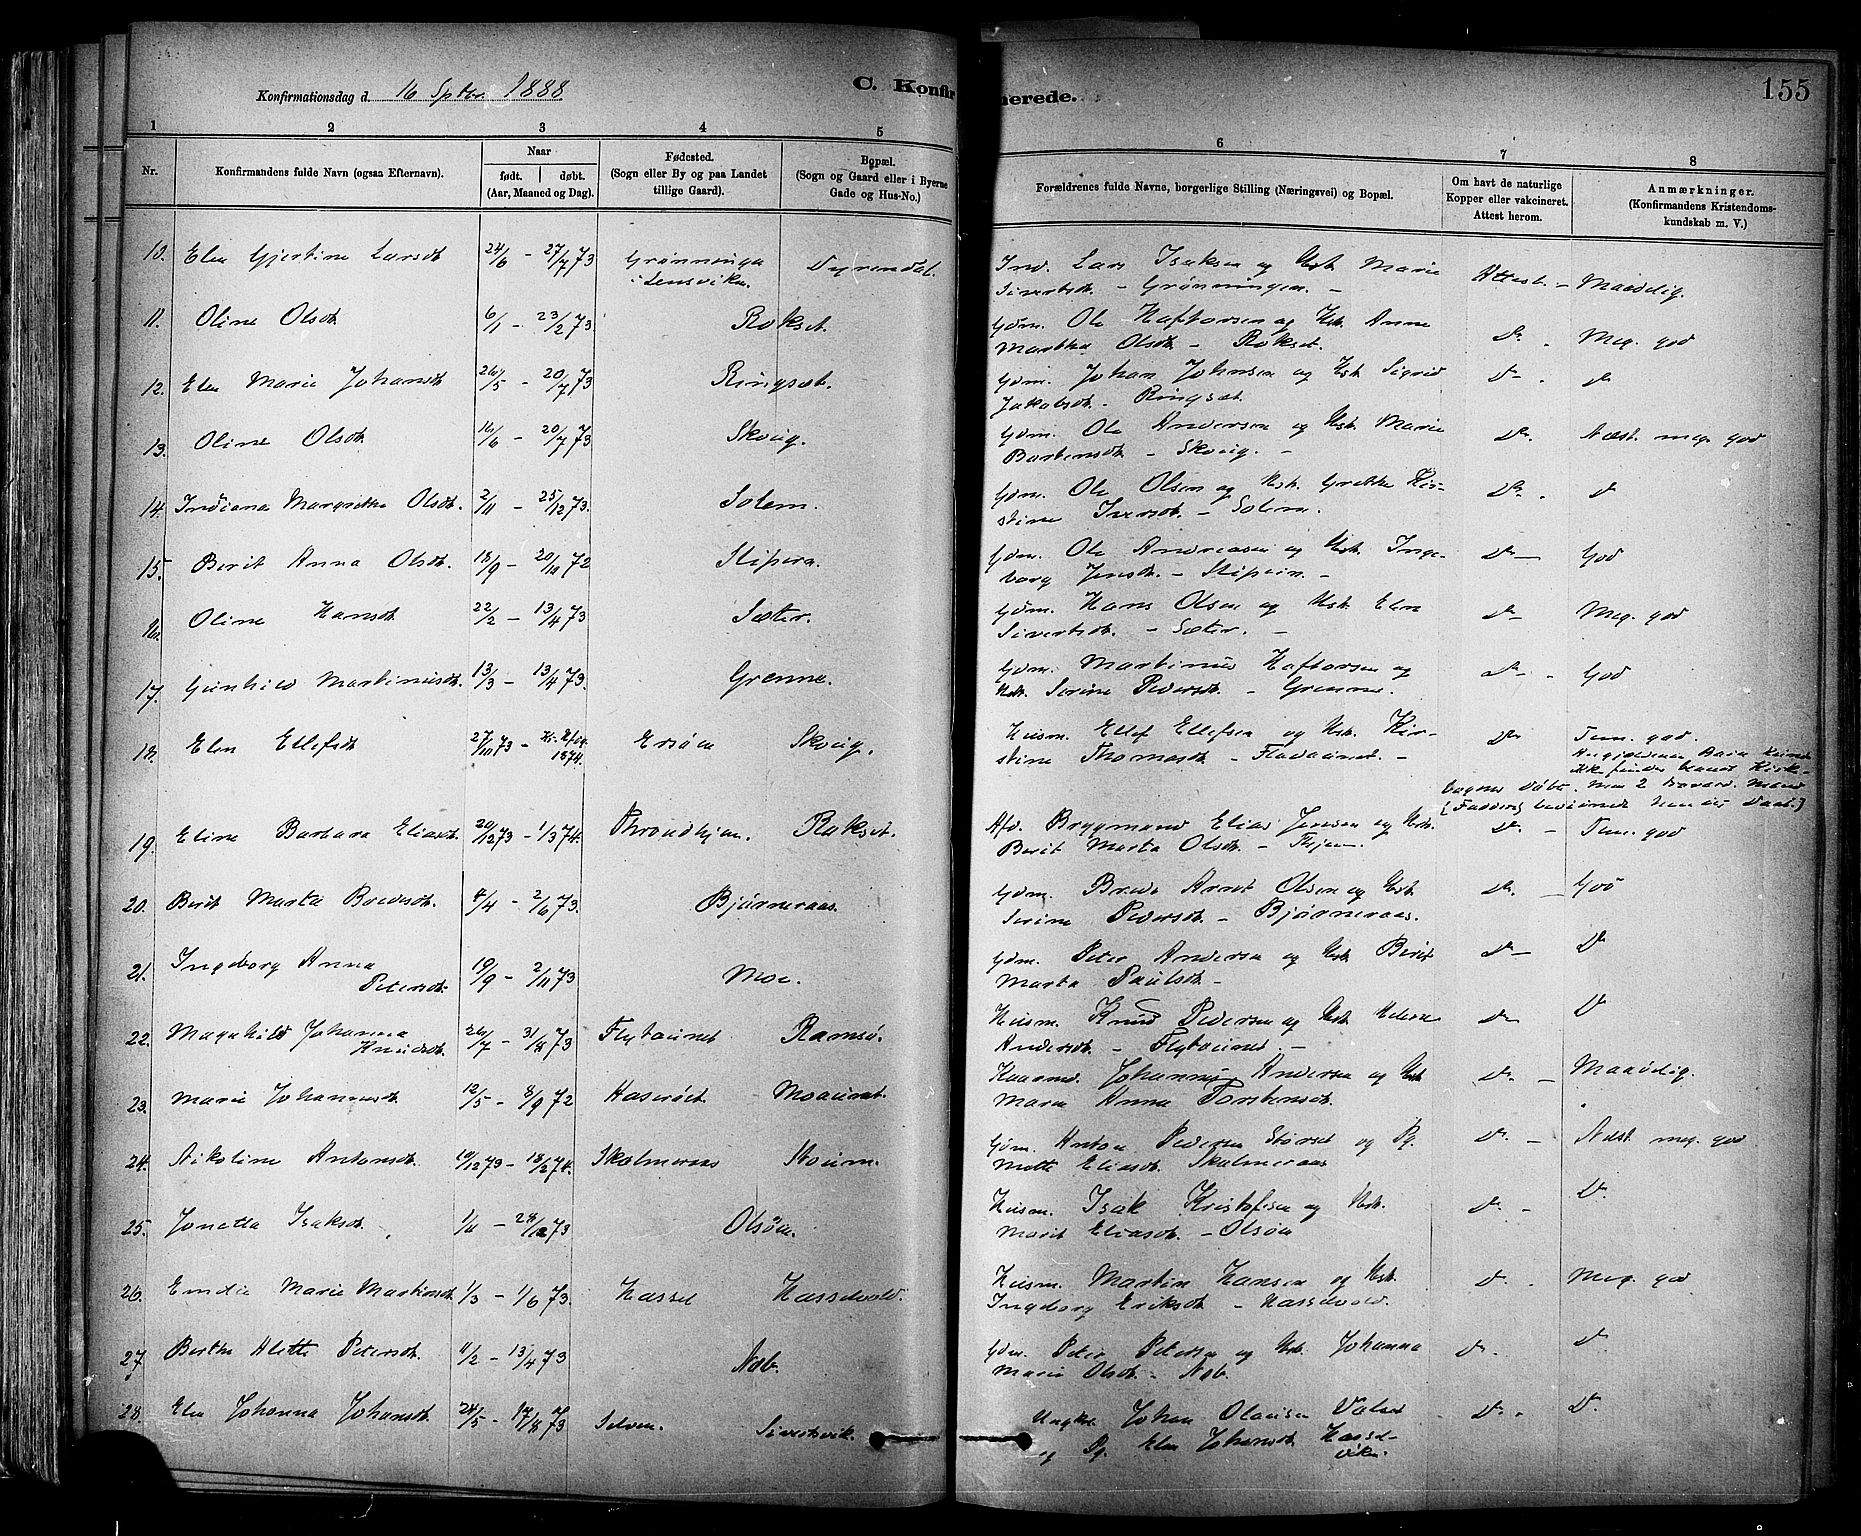 Konfirmationsdag d. 16 Sptbr. 1888
C. Konfir
merede.
155
1 2 3 4 5 6 7 8
Nr. Konfirmandens fulde Navn (ogsaa Efternavn).
Naar født. døbt. (Aar, Maaned og Dag).
Fødested. (Sogn eller By og paa Landet tillige Gaard).
Bopæl. (Sogn og Gaard eller i Byerne Gade og Hus-No.)
Forældrenes fulde Navne, borgerlige Stilling (Næringsvei) og Bopæl.
Om havt de naturlige Kopper eller vakcineret. Attest herom.
Anmærkninger. (Konfirmandens Kristendomskundskab m. V.)
10. Elen Gjertine Larsdt 24/6 - 27/7 73 Grønninga i Lensviken. Dyrendal. Ind. Lars Isaksen og Hst. Marie Attest. - Maadelig.
Sivertsdt. - Grønningen. -
11. Oline Olsdt 6/1 - 23/2 73 Rokset. Gdm. Ole Haftorsen og Hst. Anne
Martha Olsdt - Rokset. Do. Meg. god
12. Elen Marie Johansdt 26/5 - 20/7 73 Ringsæt. Gdm. Johan Johnsen og Hst. Sigrid Do - . Do
Jakobsdt. - Ringsæt.
13. Oline Olsdt 16/6 - 20/7 73 Skoug. Gdm. Ole Andersen og Hst. Marie Do. Næst. meg. god
Bartensdt - Skoug. -
14. Indiana Margrethe Olsdt. 2/11 - 25/12 73. Solem. Gdm. Ole Olsen og Hst. Grethe Kir- Do. - Do
stine Iversdt. - Solem.
15. Berit Anna Olsdt. 18/9 - 20/11 72 Stipern. Gdm. Ole Andreasen og Hst. Inge- Do - God
borg Jensdt. - Stipern. -
16. Oline Hansdt 22/2 - 13/4 73 Sæter. Gdm. Hans Olsen og Hst. Elen Do - Meg. god
Sivertsdt. - Sæter. -
17. Gunhild Martinusdt. 13/3 - 13/4 73. Grenne. Gdm. Martinus Haftorsen og Do - God
Hst. Serine Pedersdt. - Grenne.
18. Elen Ellefsdt 27/10 73 - 1874. Ersøen Skoug. Husm. Ellef Ellefsen og Hst. Kir- Do Tem. god.
stine Thomasdt - Fladaunet. -
19. Eline Barbara Eliasdt. 20/12 73 - 1/3 74. Throndhjem. Rokset. Afd. Brygmand Elias Jensen og Hst. Do. - Tem. god
Berit Marta Olsdt. - Thjem.
20. Berit Marta Bredesdt. 4/4 - 2/6 73. Bjørneraas. Gdm. Brede Arnt Olsen og Hst. Do. - God
Serine Pedersdt. - Bjørneraas.
21. Ingeborg Anna Petersdt. 19/9 - 2/11 73 Moe. Gdm. Peter Andersen og Hst. Berit Do - Do
Marta Paulsdt. -
22. Magnhild Johanna Knudsdt. 26/7 - 31/8 73 Flytaunet Ramsø. Husm. Knud Pedersen og Hst. Helene Do - Do
Andersdt. - Flytaunet. -
23. Marie Johannesdt. 12/5 - 8/9 72 Haserøet Moaunet. Kaarmd. Johannes Andersen og Hst Do. - Maadelig.
Maren Anna Torstensdt.
24. Nikoline Antonsdt. 19/12 73 - 18/2 74. Skalmeraas Stoum. Gdm. Anton Pedersen Størset og Pg. Do. - Næst. meg. god
Mette Eliasdt. Skalmeraas
25. Jonetta Isaksdt. 1/11 - 28/12 73 Olsøen. Husm. Isak Kristofersen og Hst. Do. - Do.
Marit Eliasdt. - Olsøen
26. Emelie Marie Martinsdt 1/3 - 1/6 73. Hassel Hasselvold. Husm. Martin Hansen og Hst. Do. - Meg. god
Ingeborg Eriksdt - Hasselvold.
27. Berthe Alette Petersdt. 11/2 - 13/4 73 Næb. Gdm. Peter Petersen og Hst. Johanna Do. Do.
Marie Olsdt. - Næb.
28. Elen Johanna Johansdt. 24/5 - 17/8 73 Selven. Sivertsvik. Ungkar Johan Olausen Valset Do. - Do.
og Pg. Elen Johansdt. Hasselviken.